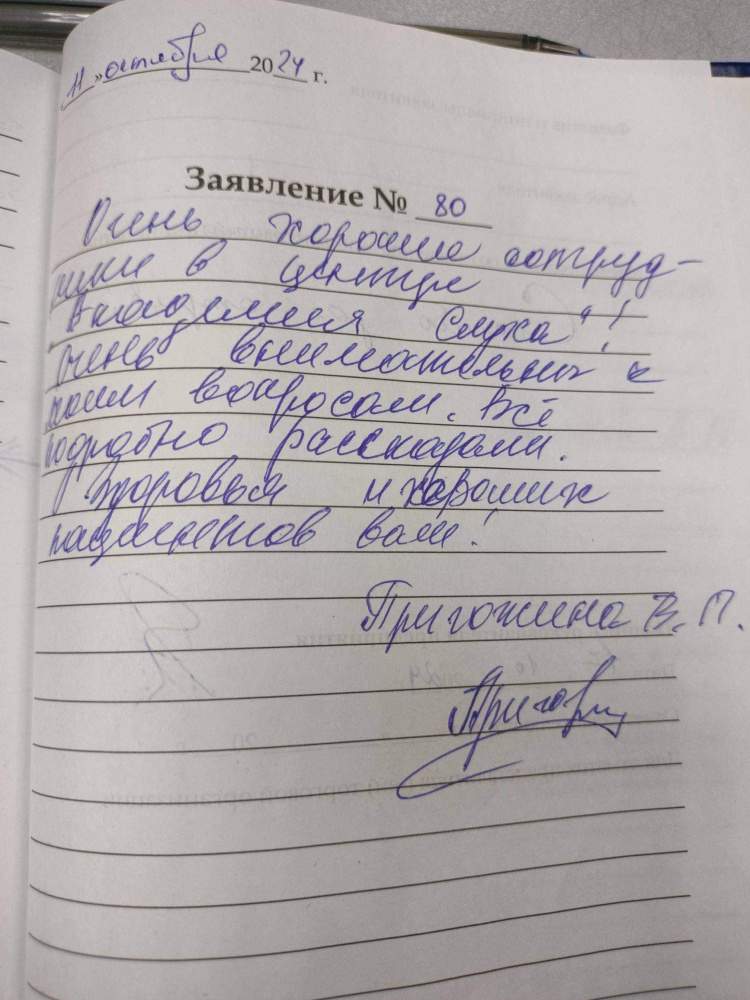 11 » октября 2024 г.
Заявление № 80
Очень хорошие сотруд-
ники в центре
"Академия Слуха"!
Очень внимательны к
моим вопросам. Всё
подробно рассказали.
Здоровья и хороших
пациентов вам!
Пригожина В. П.